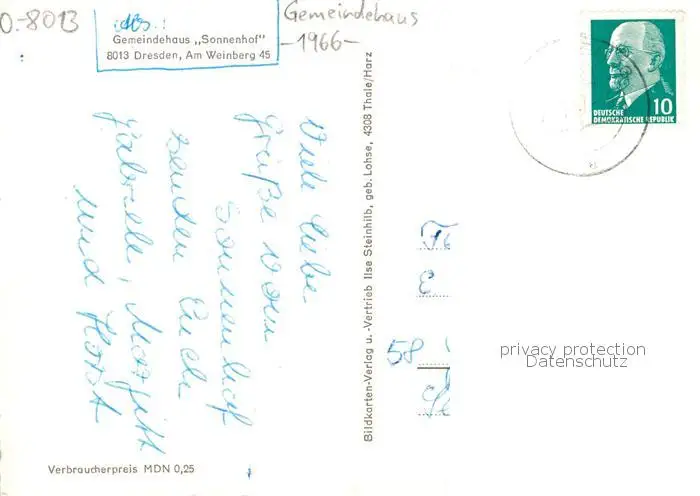 O.-8013
Abs.:
Gemeindehaus „Sonnenhof"
8013 Dresden, Am Weinberg 45
Gemeindehaus
-1966-
DEUTSCHE
DEMOKRATISCHE REPUBLIK
10
Viele liebe
Grüße vom
Sonnenhof
senden Euch
Gabriele, Margitt
und Horst
Bildkarten-Verlag u. -Vertrieb Ilse Steinhilb, geb. Lohse, 4308 Thale/Harz
58
privacy protection
Datenschutz
Verbraucherpreis MDN 0,25